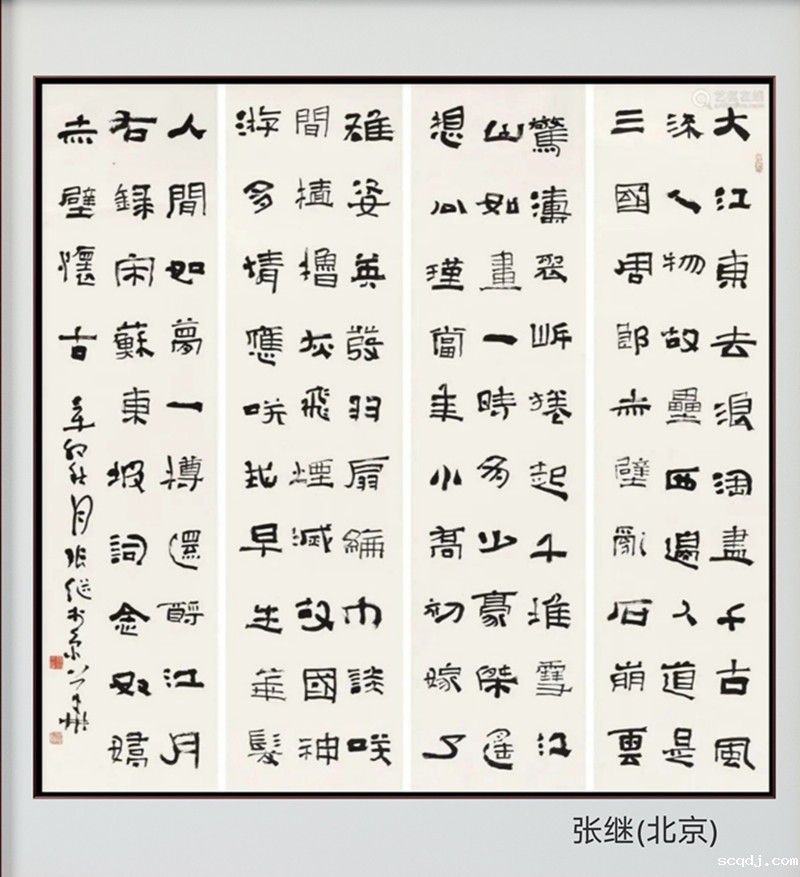 大江東去浪淘盡千古風
流人物故壘西邊人道是
三國周郎赤壁亂石崩雲
驚濤裂岸捲起千堆雪江
山如畫一時多少豪傑遙
想公瑾當年小喬初嫁了
雄姿英發羽扇綸巾談咲
間檣櫓灰飛煙滅故國神
游多情應咲我早生華髮
人間如夢一樽還酹江月
右錄宋蘇東坡詞念奴嬌
赤壁懷古 辛卯秋月张继书京
张继(北京)
scqdj.com